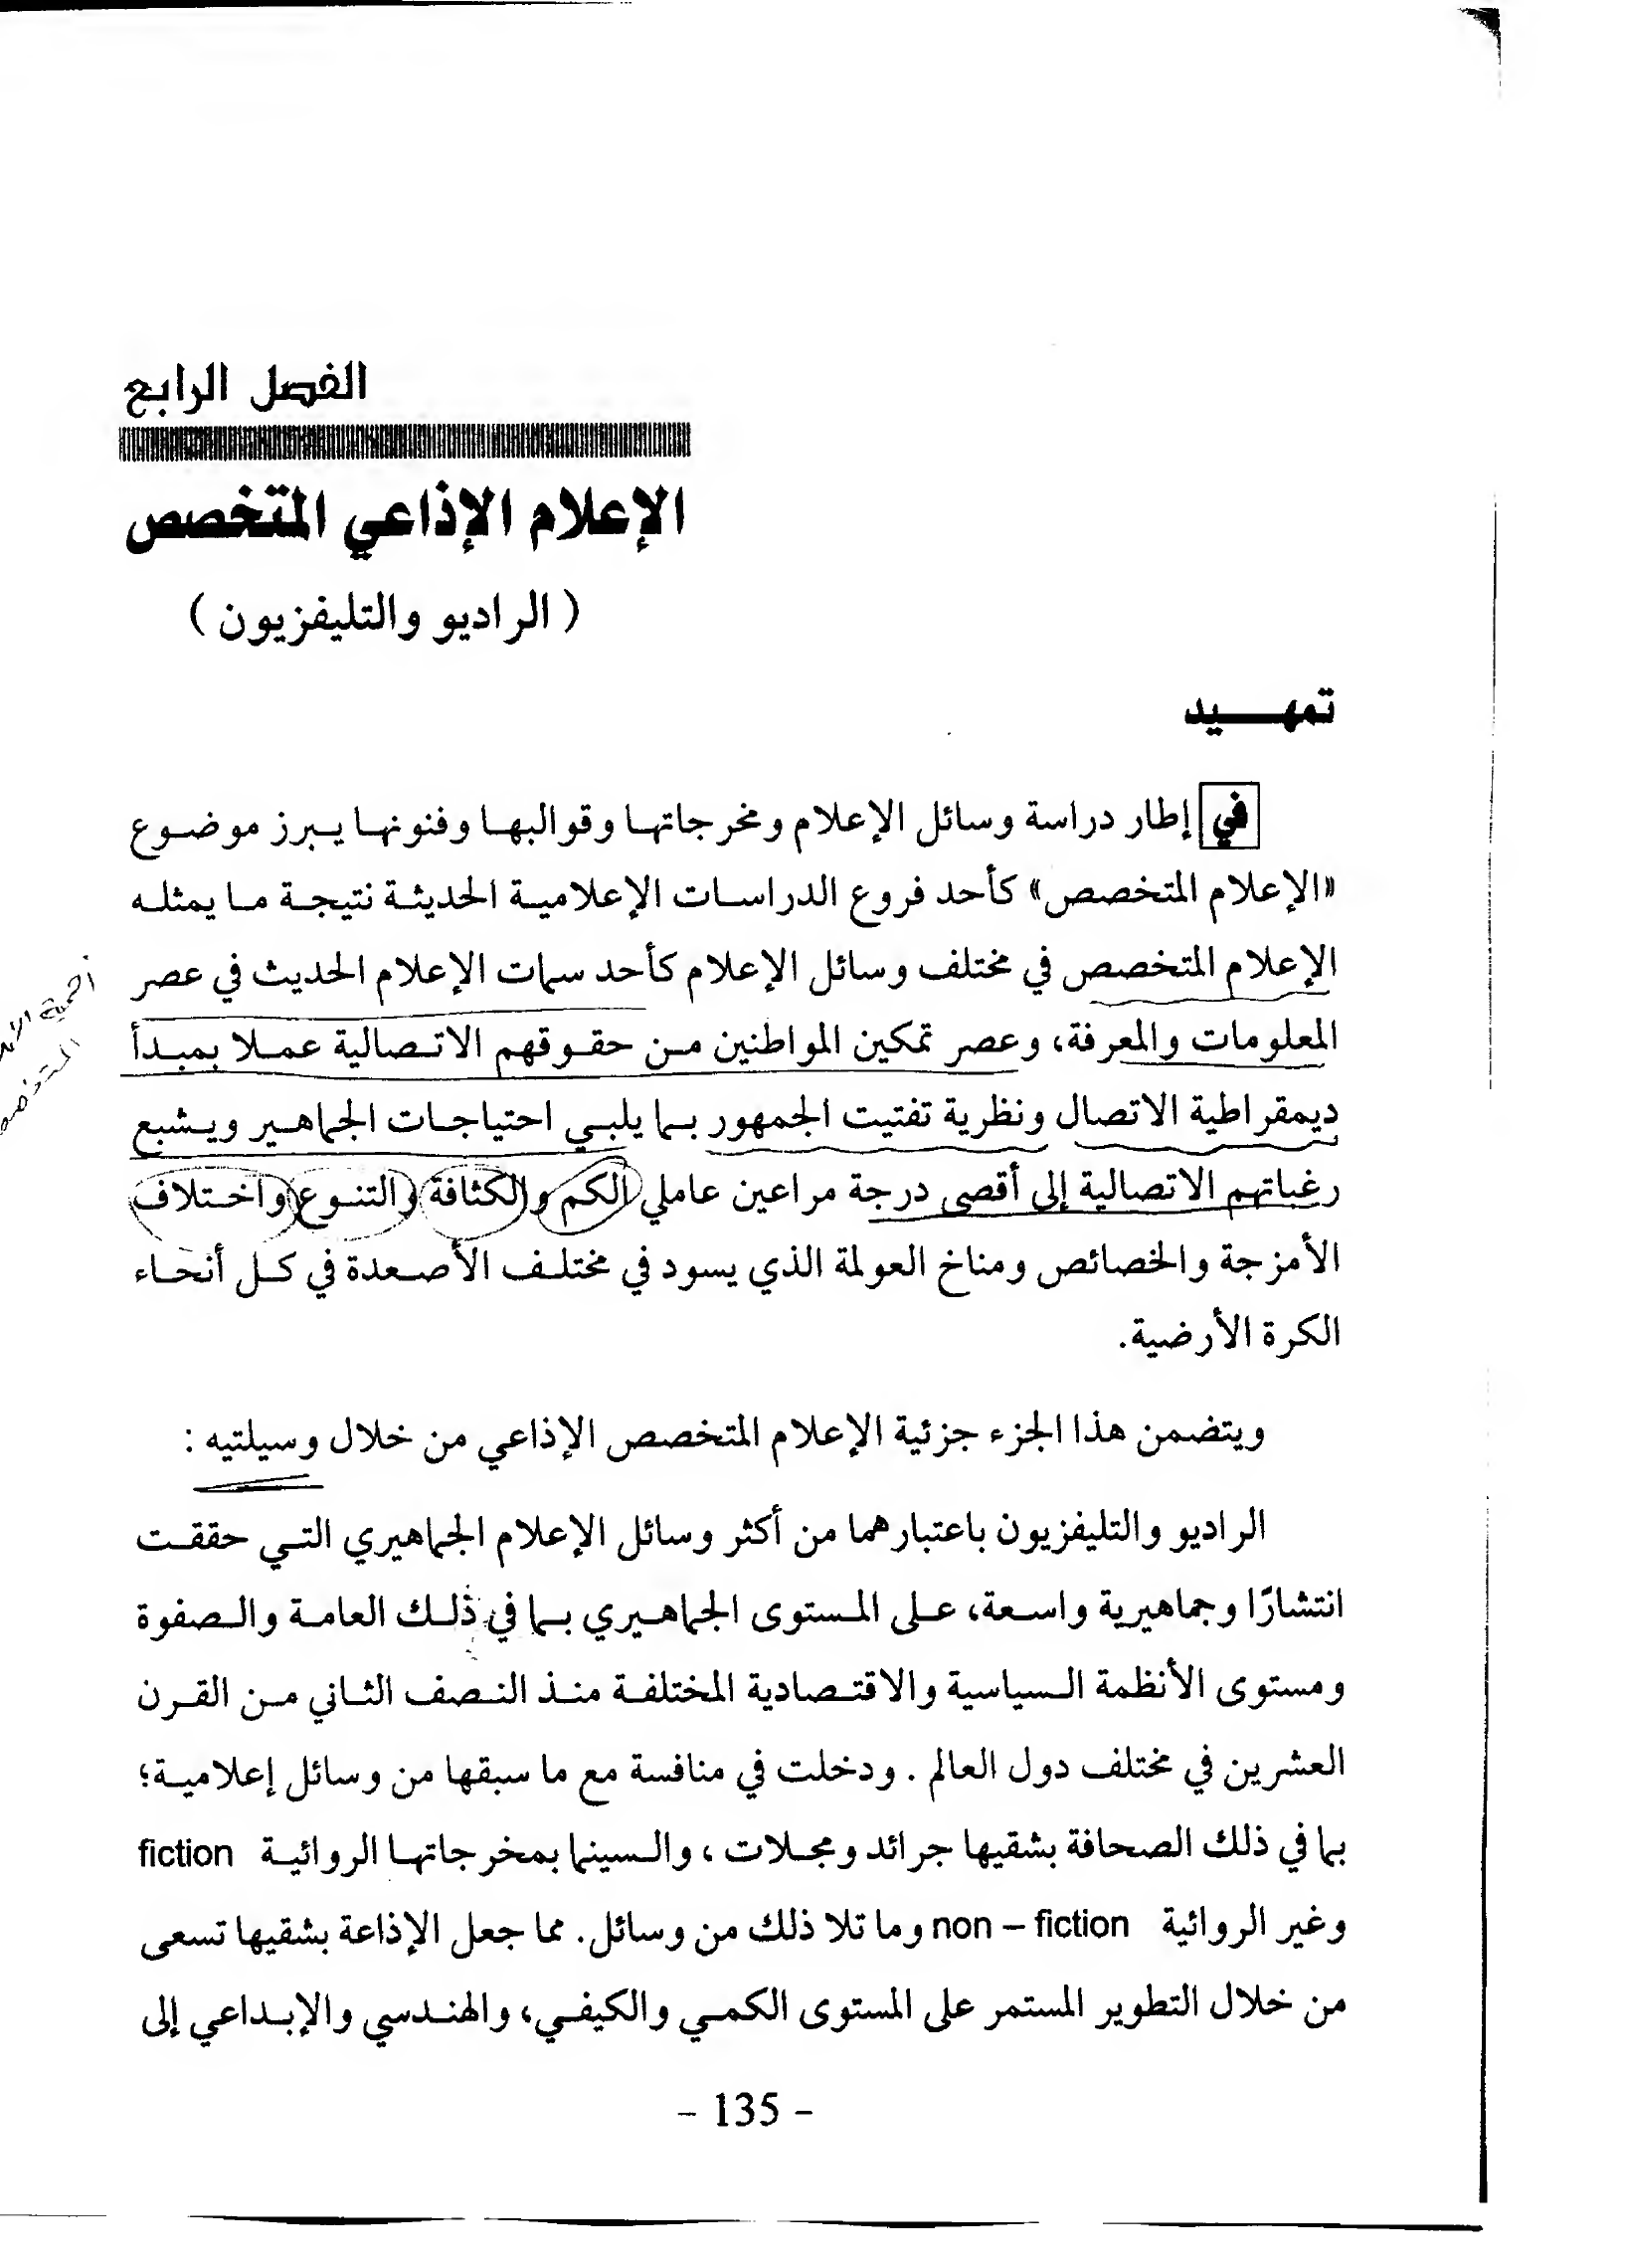 الفصل الرابع
الإعلام الإذاعي المتخصص
( الراديو والتليفزيون )
تمهيد
في إطار دراسة وسائل الإعلام ومخرجاتها وقوالبها وفنونها يبرز موضوع
«الإعلام المتخصص» كأحد فروع الدراسات الإعلامية الحديثة نتيجة ما يمثله
الإعلام المتخصص في مختلف وسائل الإعلام كأحد سمات الإعلام الحديث في عصر
المعلومات والمعرفة، وعصر تمكين المواطنين من حقوقهم الاتصالية عملا بمبدأ
ديمقراطية الاتصال ونظرية تفتيت الجمهور بما يلبي احتياجات الجماهير ويشبع
رغباتهم الاتصالية إلى أقصى درجة مراعين عاملي الكم والكثافة والتنوع واختلاف
الأمزجة والخصائص ومناخ العولمة الذي يسود في مختلف الأصعدة في كل أنحاء
الكرة الأرضية.
ويتضمن هذا الجزء جزئية الإعلام المتخصص الإذاعي من خلال وسيلتيه :
الراديو والتليفزيون باعتبارهما من أكثر وسائل الإعلام الجماهيري التي حققت
انتشارًا وجماهيرية واسعة، على المستوى الجماهيري بما في ذلك العامة والصفوة
ومستوى الأنظمة السياسية والاقتصادية المختلفة منذ النصف الثاني من القرن
العشرين في مختلف دول العالم . ودخلت في منافسة مع ما سبقها من وسائل إعلامية؛
بما في ذلك الصحافة بشقيها جرائد ومجلات ، والسينما بمخرجاتها الروائية fiction
وغير الروائية non – fiction وما تلا ذلك من وسائل. مما جعل الإذاعة بشقيها تسعى
من خلال التطوير المستمر على المستوى الكمي والكيفي، والهندسي والإبداعي إلى
- 135 -
أهمية